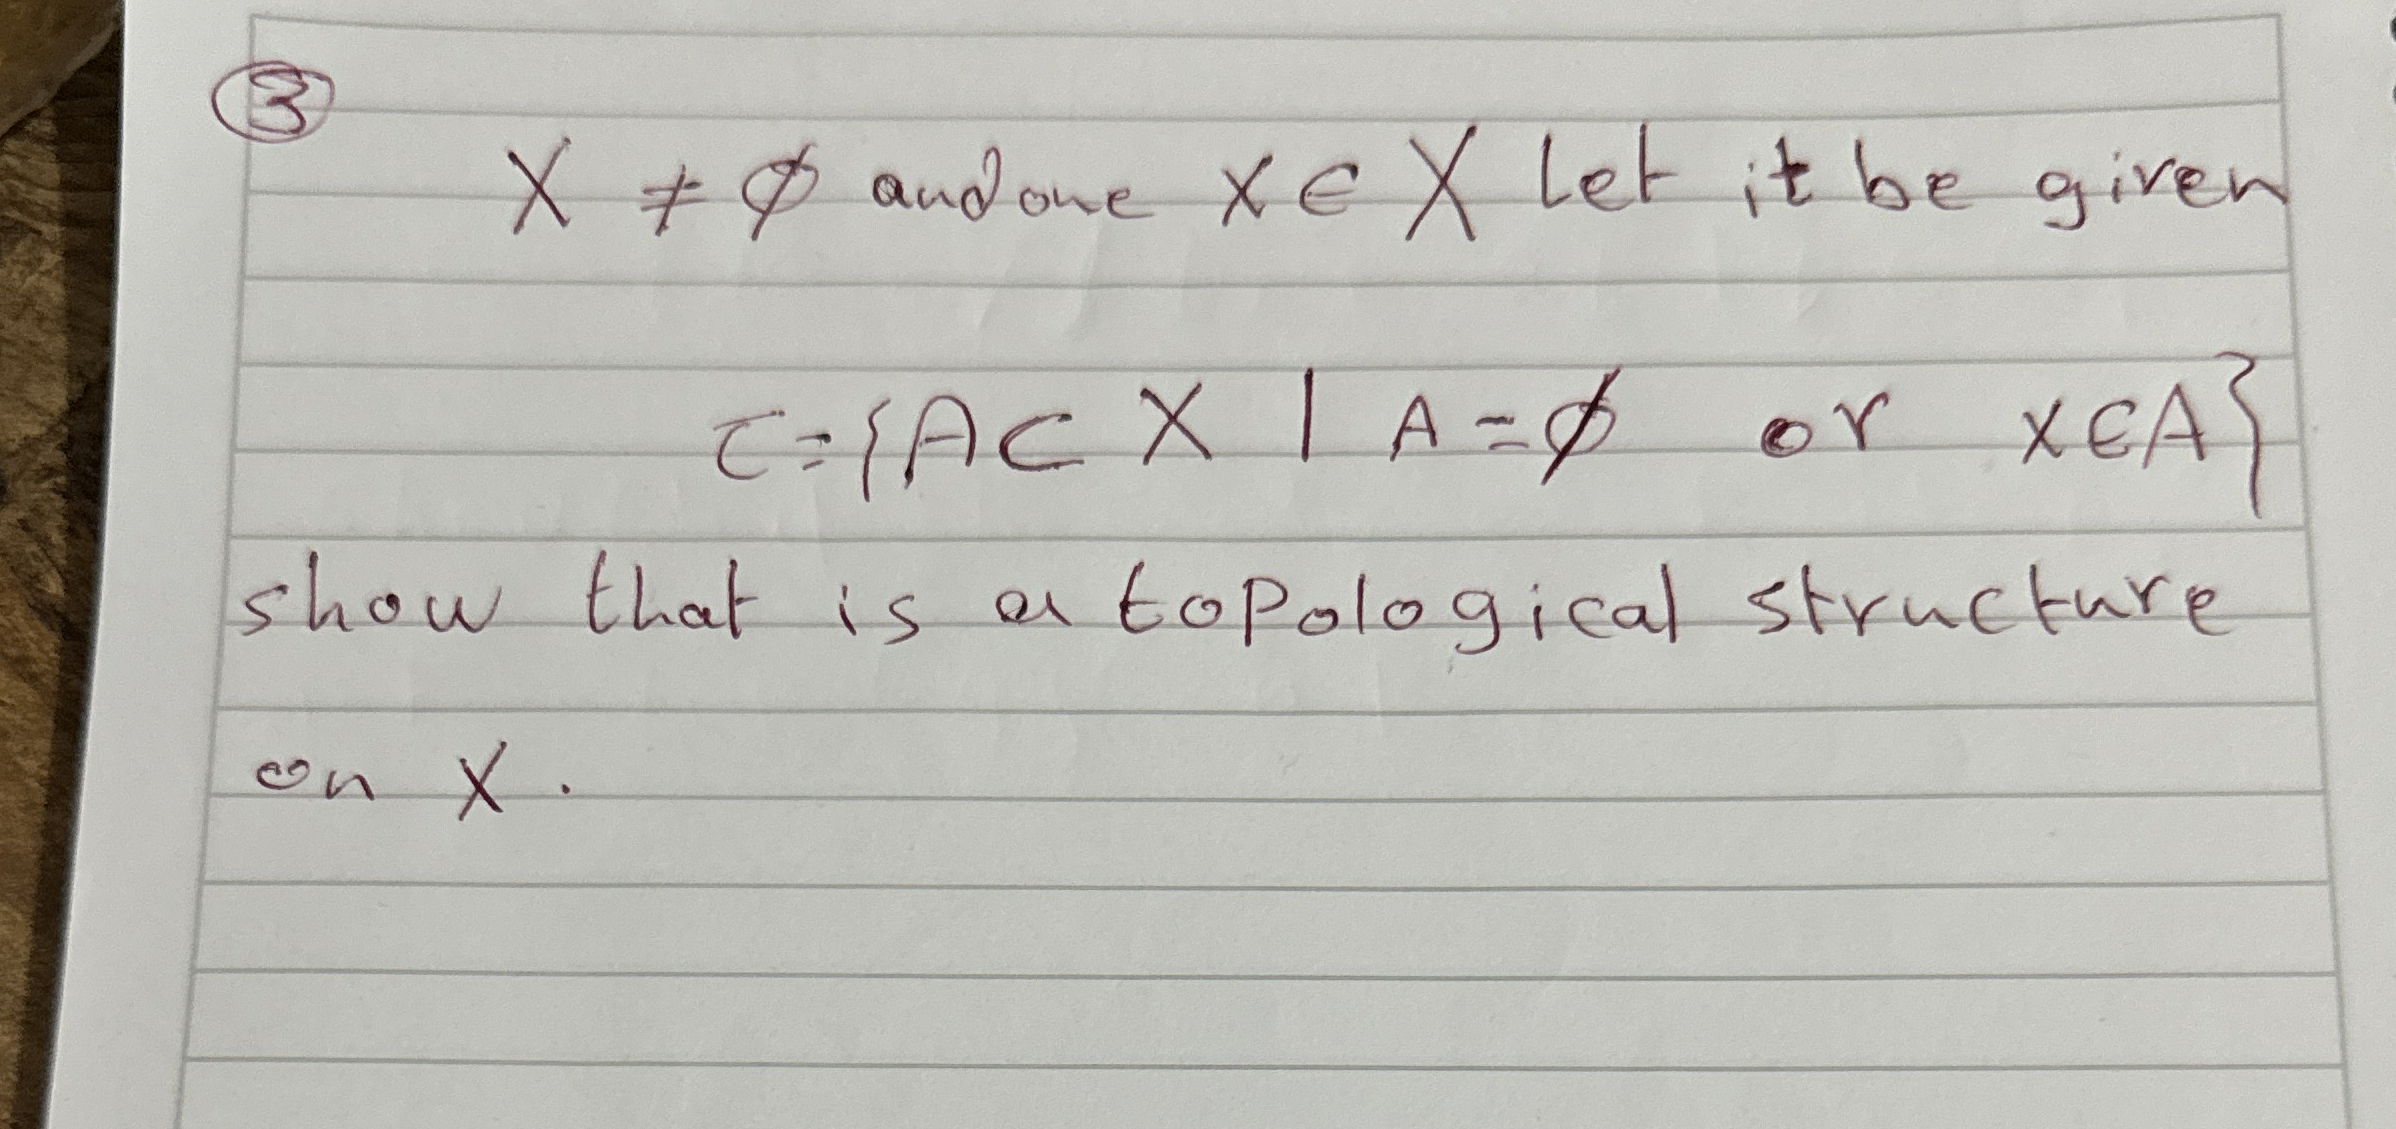 3
X ≠ ∅ and one x ∈ X Let it be given
τ = {A ⊂ X | A = ∅ or x ∈ A}
show that is a topological structure
on X.